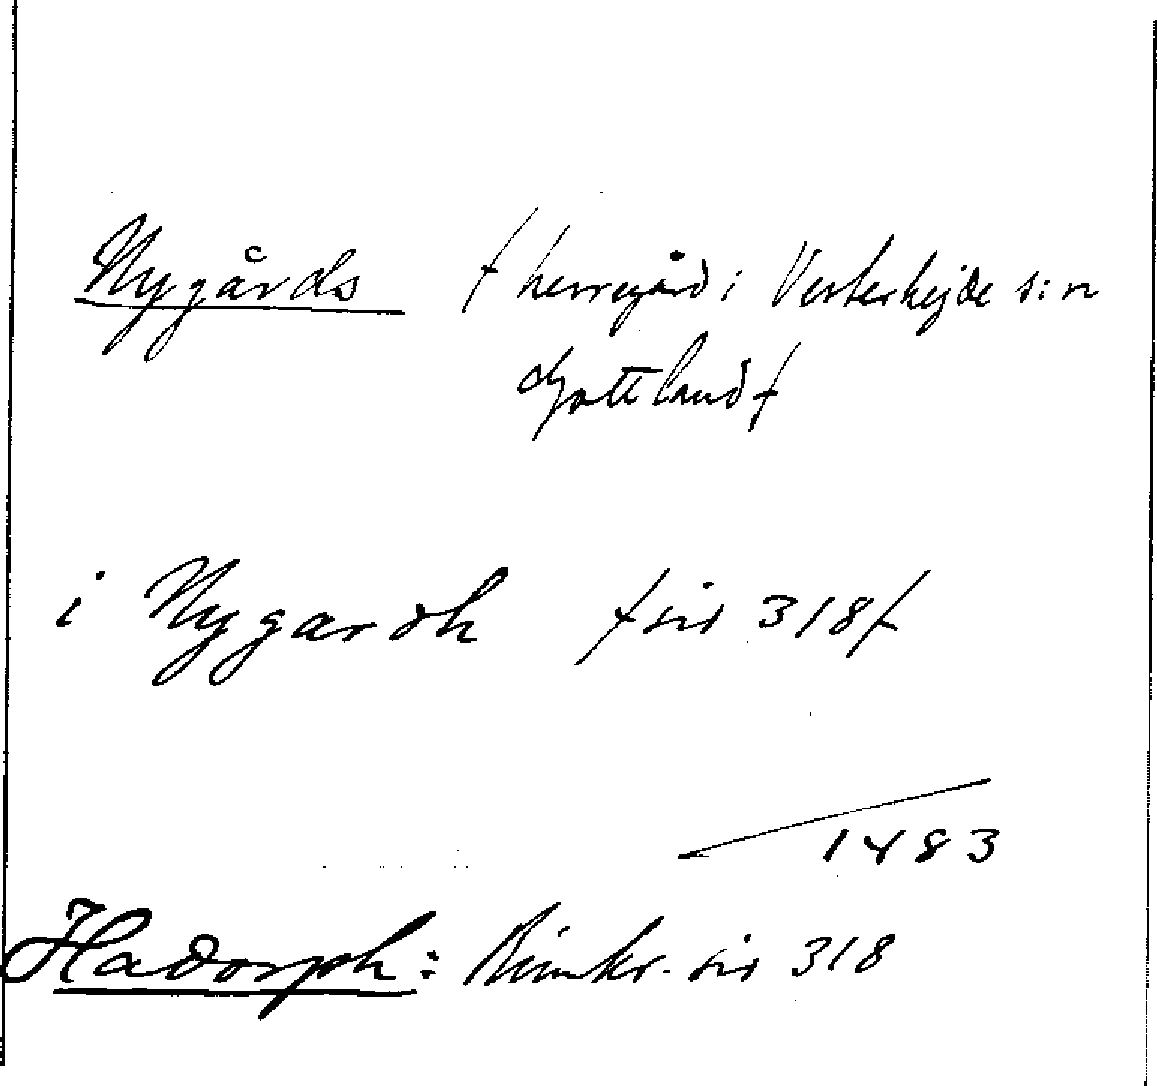 Nygårds / herregård i Vesterhejde s:n
Gottland /
i Nygardh / sid 318 /
1483
Hadorph: Rimkr. sid 318